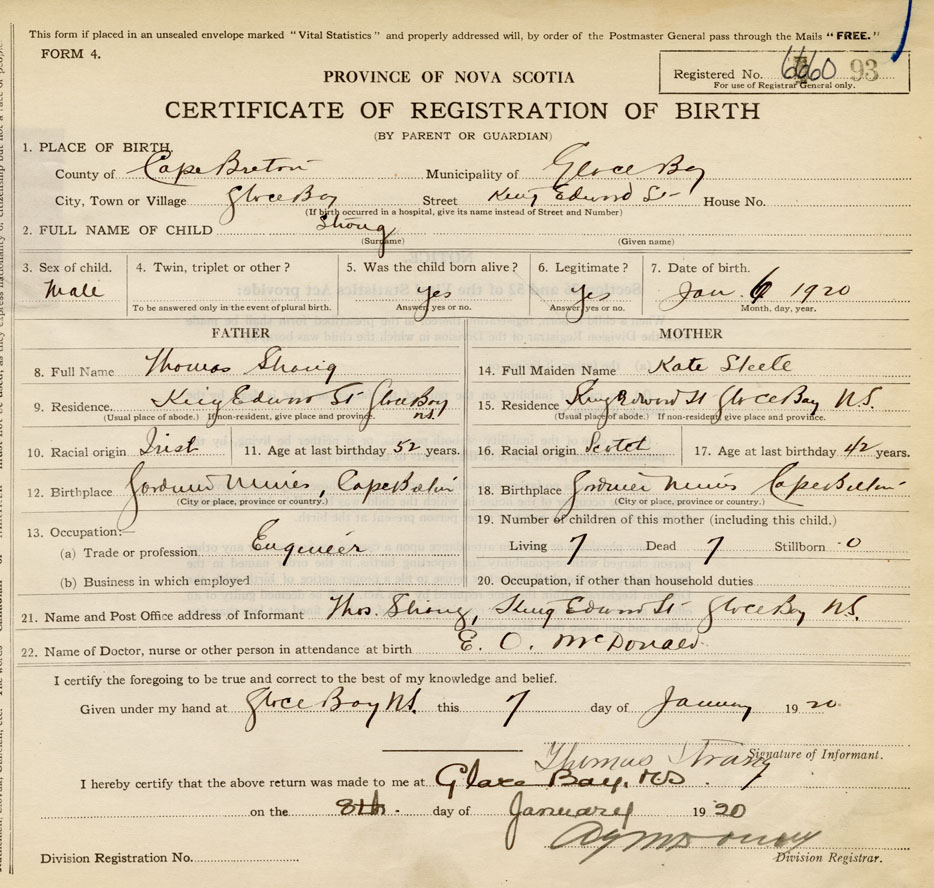 This form if placed in an unsealed envelope marked "Vital Statistics" and properly addressed will, by order of the Postmaster General pass through the Mails "FREE."
FORM 4.
Registered No. 6660 93
For use of Registrar General only.
PROVINCE OF NOVA SCOTIA
CERTIFICATE OF REGISTRATION OF BIRTH
(BY PARENT OR GUARDIAN)
1. PLACE OF BIRTH.
County of Cape Breton Municipality of Glace Bay
City, Town or Village Glace Bay Street King Edward St House No.
(If birth occurred in a hospital, give its name instead of Street and Number)
2. FULL NAME OF CHILD Strong
(Surname) (Given name)
3. Sex of child. 4. Twin, triplet or other? 5. Was the child born alive? 6. Legitimate? 7. Date of birth.
Male Yes Yes Jan. 6 1920
To be answered only in the event of plural birth. Answer, yes or no. Answer, yes or no. Month, day, year.
FATHER MOTHER
8. Full Name Thomas Strong 14. Full Maiden Name Kate Steele
9. Residence. King Edward St Glace Bay N.S. 15. Residence King Edward St Glace Bay N.S.
(Usual place of abode.) If non-resident, give place and province. (Usual place of abode.) If non-resident, give place and province.
10. Racial origin Irish 11. Age at last birthday 52 years. 16. Racial origin Scotch 17. Age at last birthday 42 years.
12. Birthplace Gardiner Mines, Cape Breton 18. Birthplace Gardiner Mines Cape Breton
(City or place, province or country.) (City or place, province or country.)
13. Occupation:— 19. Number of children of this mother (including this child.)
(a) Trade or profession. Engineer Living 7 Dead 7 Stillborn 0
(b) Business in which employed 20. Occupation, if other than household duties
21. Name and Post Office address of Informant Thos. Strong, King Edward St Glace Bay N.S.
22. Name of Doctor, nurse or other person in attendance at birth E. O. McDonald
I certify the foregoing to be true and correct to the best of my knowledge and belief.
Given under my hand at Glace Bay N.S. this 7 day of January 1920
Thomas Strong
Signature of Informant.
I hereby certify that the above return was made to me at Glace Bay, N.S.
on the 8th day of January 1920
Division Registration No. Division Registrar.